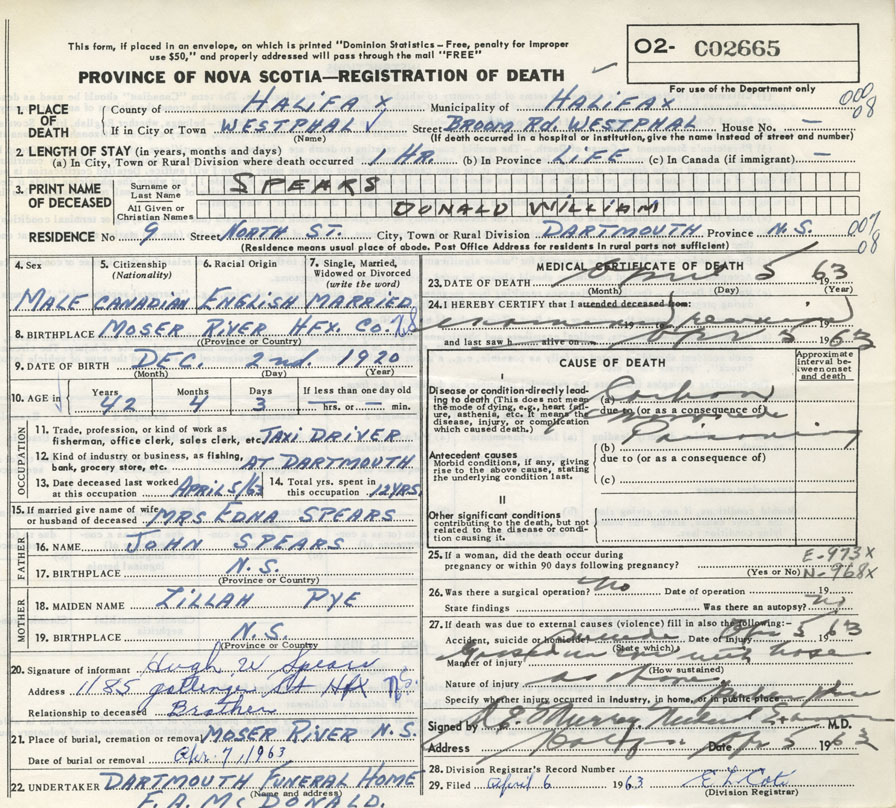 This form, if placed in an envelope, on which is printed "Dominion Statistics - Free, penalty for improper
use $50," and properly addressed will pass through the mail "FREE"
O2- C02665
PROVINCE OF NOVA SCOTIA—REGISTRATION OF DEATH
For use of the Department only
1. PLACE OF DEATH
County of HALIFAX Municipality of HALIFAX
000
08
If in City or Town WESTPHAL Street BROOM RD. WESTPHAL House No. —
(Name) (If death occurred in a hospital or institution, give the name instead of street and number)
2. LENGTH OF STAY (in years, months and days)
(a) In City, Town or Rural Division where death occurred 1 HR. (b) In Province LIFE (c) In Canada (if immigrant) —
3. PRINT NAME OF DECEASED
Surname or Last Name SPEARS
All Given or Christian Names DONALD WILLIAM
RESIDENCE No 9 Street NORTH ST. City, Town or Rural Division DARTMOUTH Province N.S.
007
08
(Residence means usual place of abode. Post Office Address for residents in rural parts not sufficient)
4. Sex
5. Citizenship (Nationality)
6. Racial Origin
7. Single, Married, Widowed or Divorced (write the word)
MALE CANADIAN ENGLISH MARRIED
8. BIRTHPLACE MOSER RIVER HFX. CO.
(Province or Country)
9. DATE OF BIRTH DEC. 2nd. 1920
(Month) (Day) (Year)
10. AGE in
Years Months Days If less than one day old
42 4 3 — hrs. or — min.
OCCUPATION
11. Trade, profession, or kind of work as fisherman, office clerk, sales clerk, etc. TAXI DRIVER
12. Kind of industry or business, as fishing, bank, grocery store, etc. AT DARTMOUTH
13. Date deceased last worked at this occupation APRIL 5/63
14. Total yrs. spent in this occupation 12 YRS.
15. If married give name of wife or husband of deceased MRS EDNA SPEARS
FATHER
16. NAME JOHN SPEARS
17. BIRTHPLACE N.S.
(Province or Country)
MOTHER
18. MAIDEN NAME LILLAH PYE
19. BIRTHPLACE N.S.
(Province or Country)
20. Signature of informant Hugh W Spears
Address 1185 Gottingen St Hfx N.S.
Relationship to deceased Brother
21. Place of burial, cremation or removal MOSER RIVER N.S.
Date of burial or removal Apr. 7, 1963
22. UNDERTAKER DARTMOUTH FUNERAL HOME
(Name and address)
F. A. McDONALD.
MEDICAL CERTIFICATE OF DEATH
23. DATE OF DEATH April 5 63
(Month) (Day) (Year)
24. I HEREBY CERTIFY that I attended deceased from:
19 19
and last saw h alive on Apr 5 1963
CAUSE OF DEATH
Approximate interval between onset and death
I
Disease or condition directly leading to death (This does not mean the mode of dying, e.g., heart failure, asthenia, etc. It means the disease, injury, or complication which caused death.)
(a) Carbon
due to (or as a consequence of)
Monoxide
(b) Poisoning
Antecedent causes
Morbid conditions, if any, giving rise to the above cause, stating the underlying condition last.
due to (or as a consequence of)
(c)
II
Other significant conditions contributing to the death, but not related to the disease or condition causing it.
25. If a woman, did the death occur during pregnancy or within 90 days following pregnancy?
(Yes or No)
E-973X
N-968X
26. Was there a surgical operation? No Date of operation 19
State findings Was there an autopsy? No
27. If death was due to external causes (violence) fill in also the following:—
Accident, suicide or homicide Suicide Date of injury Apr 5 1963
(State which)
Manner of injury
(How sustained)
Nature of injury as above
Specify whether injury occurred in Industry, in home, or in public place Public place
Signed by M.D.
Address Halifax Date Apr 5 1963
28. Division Registrar's Record Number
29. Filed April 6 1963
(Division Registrar)